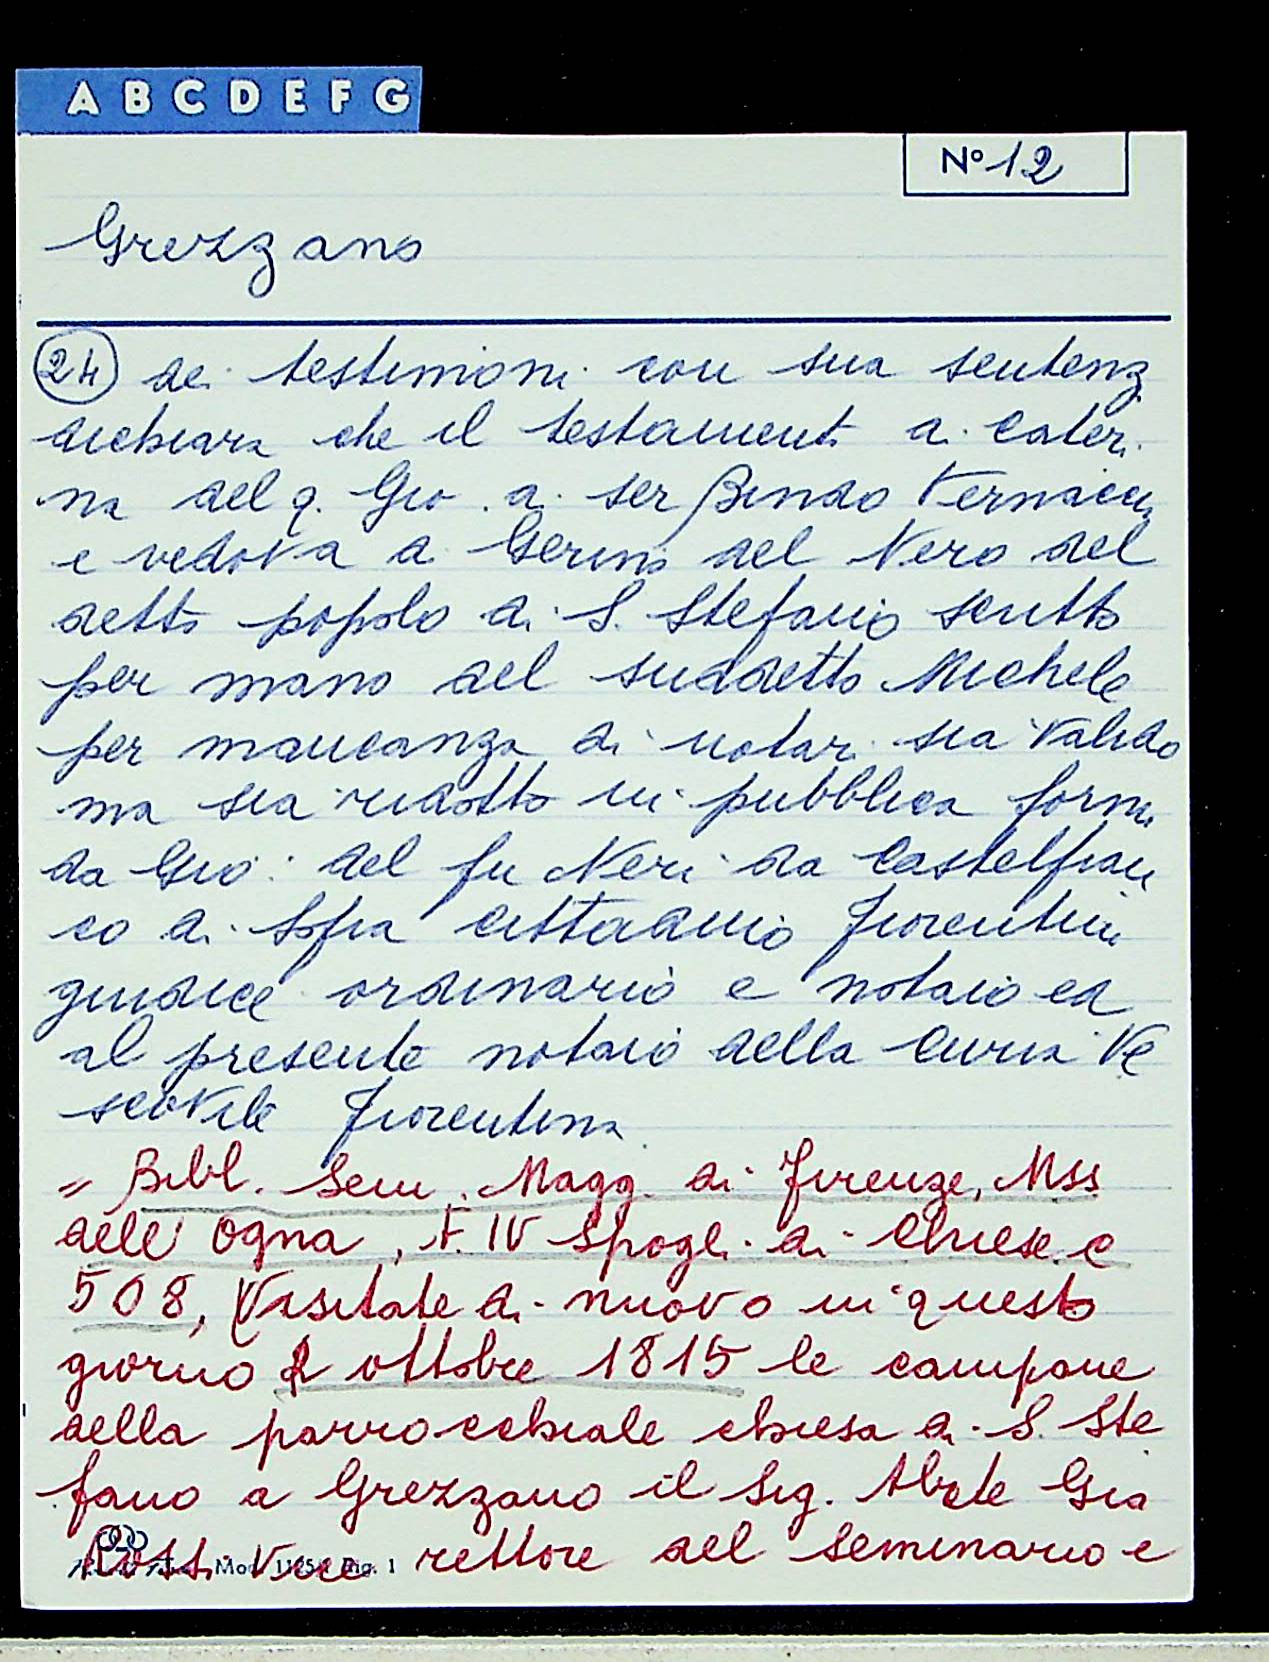 A B C D E F G
N° 12
Grezzano
24 dei testimoni con sua sentenz
dichiara che il testamento di Cateri
na del q. Gio. di ser Bindo Vernacci
e vedova di Gerino del Nero del
detto popolo di S. Stefano scritto
per mano del suddetto Michele
per mancanza di notari sia valido
ma sia ridotto in pubblica forma
da Gio: del fu Neri da Castelfran
co di Sopra cittadino fiorentin
giudice ordinario e notaio ed
al presente notaio della Curia Ve
scovile fiorentina
= Bibl. Sem. Magg. di Firenze, Mss
dell' Ogna, t. IV Spogli di Chiese c
508, Visitate di nuovo in questo
giorno ottobre 1815 le campane
della parrocchiale chiesa di S. Ste
fano a Grezzano il Sig. Abate Gia
Rossi vice rettore del seminario e
Mod. Rig. 1